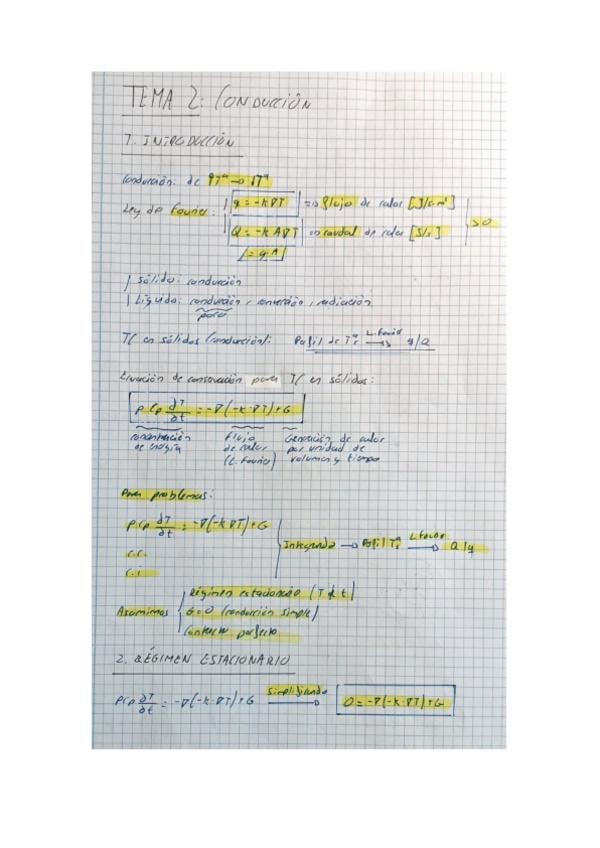 TEMA 2: CONDUCCIÓN
1. INTRODUCCIÓN
Conducción: de ↑Tª → ↓Tª
Ley de Fourier: q = -k∇T => flujo de calor [J/s·m²]
Q = -k A∇T => caudal de calor [J/s] >0
= q·A
Sólido: conducción
Líquido: conducción, convección, radiación
TC en sólidos (conducción): Perfil de Tª L.Fourier → q/Q
Ecuación de conservación para TC en sólidos:
ρ Cp ∂T/∂t = -∇(-k·∇T)+G
concentración flujo Generación de calor
de energía de calor por unidad de
(L. Fourier) volumen y tiempo
Para problemas:
ρ·Cp ∂T/∂t = -∇(-k·∇T)+G
C.C.
C.I
Integrando → Perfil Tª L.Fourier → Q/q
Asumimos Régimen estacionario (T≠t)
G=0 (conducción simple)
Contacto perfecto
2. RÉGIMEN ESTACIONARIO
ρCp ∂T/∂t = -∇(-k·∇T)+G simplificando → 0 = -∇(-k·∇T)+G